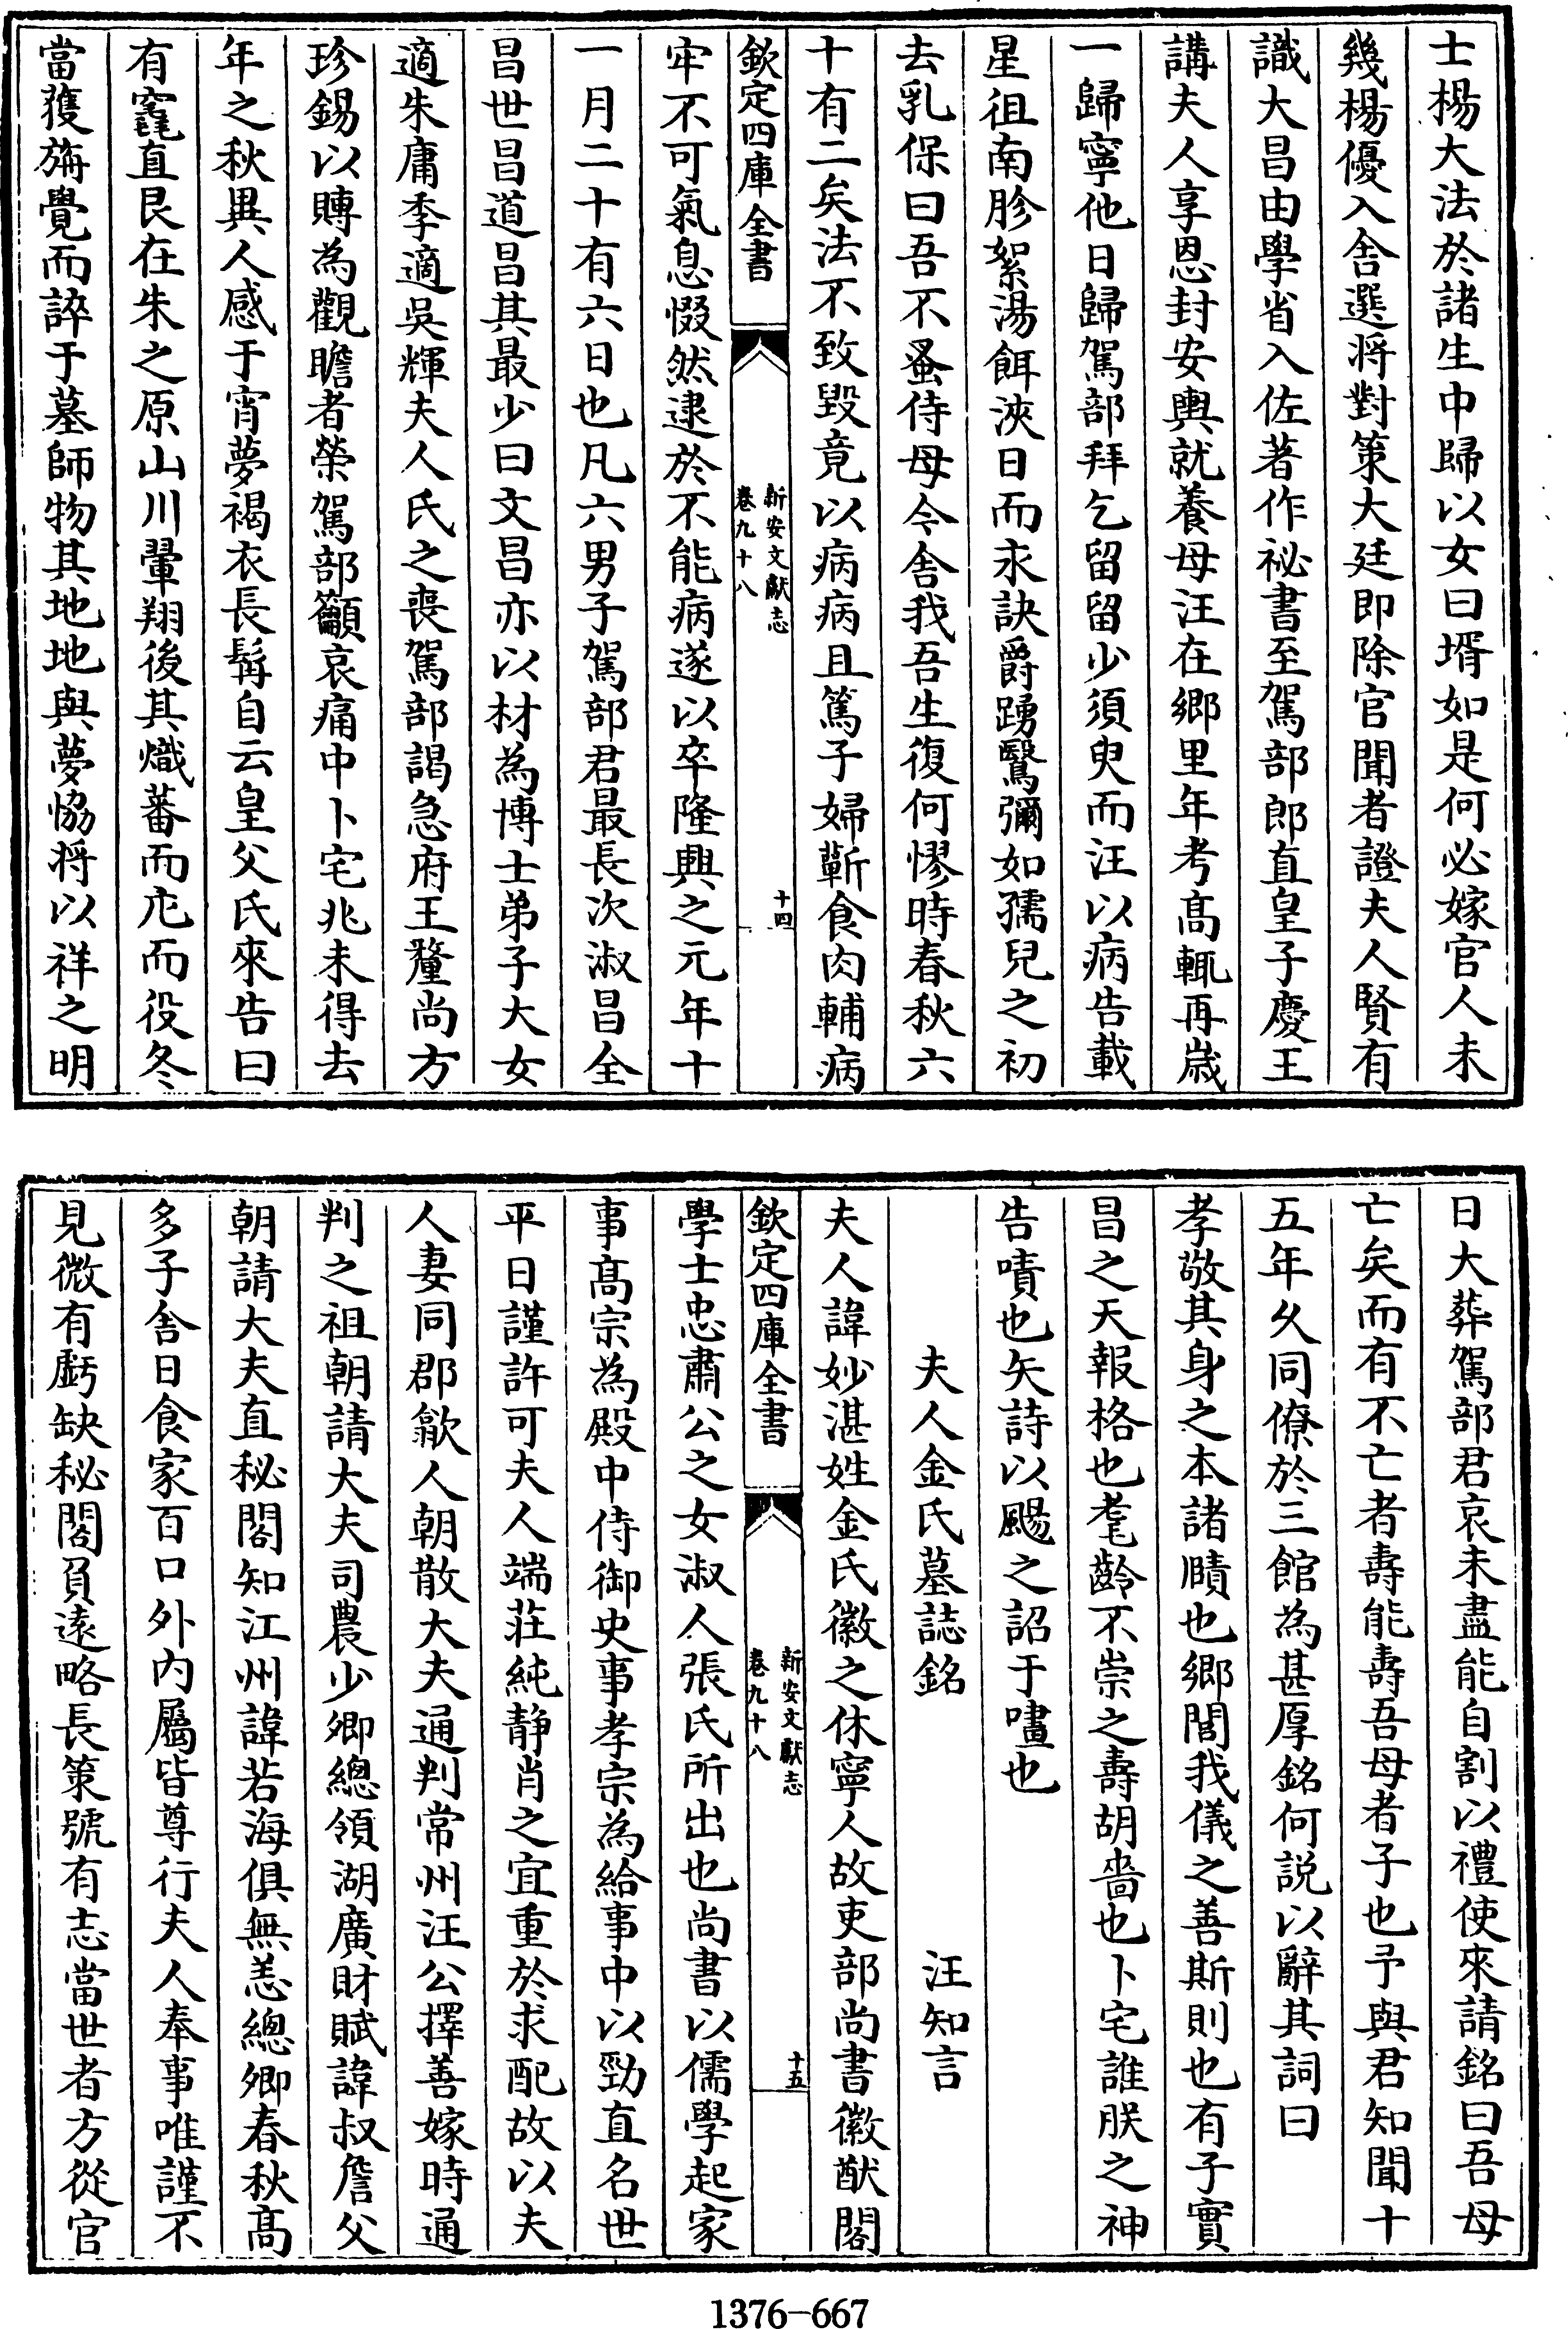 士楊大法於諸生中歸以女曰壻如是何必嫁官人未
幾楊優入舍選将對策大廷即除官聞者證夫人賢有
識大昌由學省入佐著作祕書至駕部郎直皇子慶王
講夫人享恩封安輿就養母汪在鄉里年考髙輒再歳
一歸寧他日歸駕部拜乞留留少須臾而汪以病告載
星徂南胗絮湯餌浹日而永訣爵踴鷖彌如孺兒之初
去乳保曰吾不蚤侍母令舎我吾生復何憀時春秋六
十有二矣法不致毀竟以病病且篤子婦蘄食肉輔病
欽定四庫全書
新安文獻志
卷九十八
十四
牢不可氣息惙然逮於不能病遂以卒隆興之元年十
一月二十有六日也凡六男子駕部君最長次淑昌全
昌世昌道昌其最少曰文昌亦以材為博士弟子大女
適朱庸季適吳輝夫人氏之喪駕部謁急府王釐尚方
珍錫以賻為觀瞻者榮駕部籲哀痛中卜宅兆未得去
年之秋異人感于宵夢褐衣長髯自云皇父氏來告曰
有竁直艮在朱之原山川翬翔後其熾蕃而庀而役冬
當獲旃覺而誶于墓師物其地地與夢恊将以祥之明
日大葬駕部君哀未盡能自割以禮使來請銘曰吾母
亡矣而有不亡者壽能壽吾母者子也予與君知聞十
五年乆同僚於三館為甚厚銘何説以辭其詞曰
孝敬其身之本諸賾也鄉閭我儀之善斯則也有子實
昌之天報格也耄齡不崇之壽胡嗇也卜宅誰朕之神
告嘖也矢詩以颺之詔于嚍也
夫人金氏墓誌銘　汪知言
夫人諱妙湛姓金氏徽之休寧人故吏部尚書徽猷閣
欽定四庫全書
新安文獻志
卷九十八
十五
學士忠肅公之女淑人張氏所出也尚書以儒學起家
事髙宗為殿中侍御史事孝宗為給事中以勁直名世
平日謹許可夫人端莊純静肖之宜重於求配故以夫
人妻同郡歙人朝散大夫通判常州汪公擇善嫁時通
判之祖朝請大夫司農少卿總領湖廣財賦諱叔詹父
朝請大夫直秘閣知江州諱若海俱無恙總卿春秋髙
多子舎日食家百口外内屬皆尊行夫人奉事唯謹不
見微有虧缺秘閣負逺略長策號有志當世者方從官
1376-667